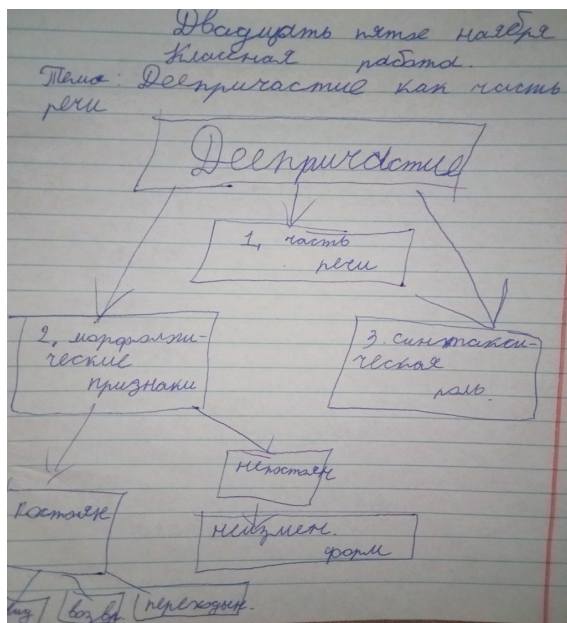 Двадцать пятое ноября
Классная работа.
Тема: Деепричастие как часть
речи
Деепричастие
1, часть
речи
2, морфологи-
ческие
признаки
3. синтакси-
ческая
роль.
непостоян
постоян
неизмен.
форм
вид возвр переходн.